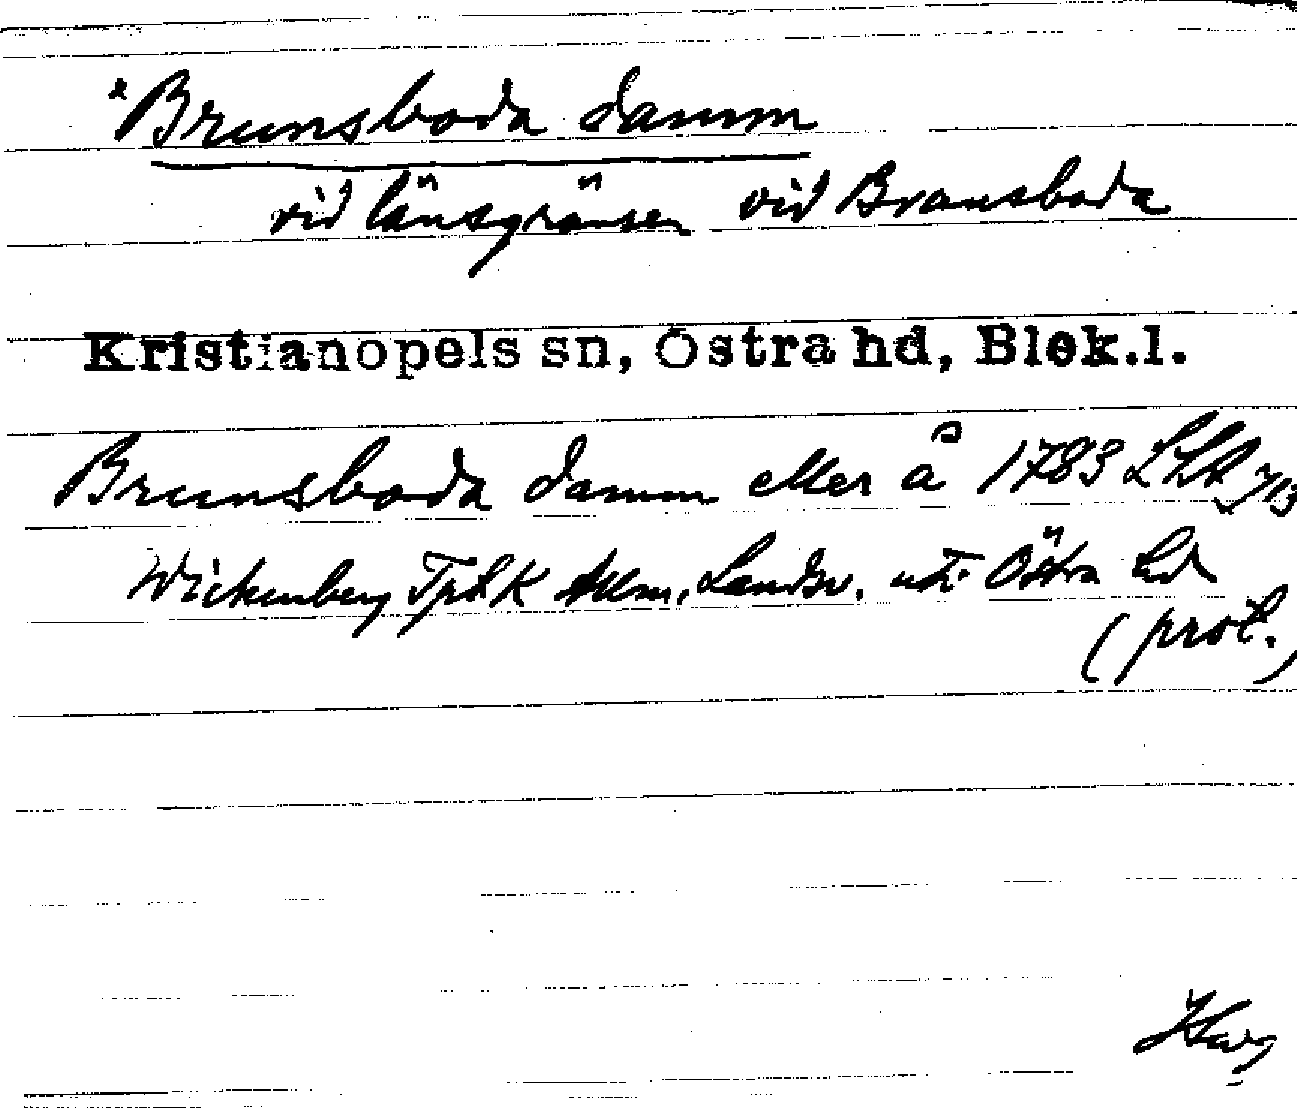 *Brunsboda damm
vid länsgränsen vid Bransboda
Kristianopels sn, Östra hd, Blek.l.
Brunsboda damm eller å 1783
Wickenberg Allm. Landsv. uti Östra hd
(prot.)